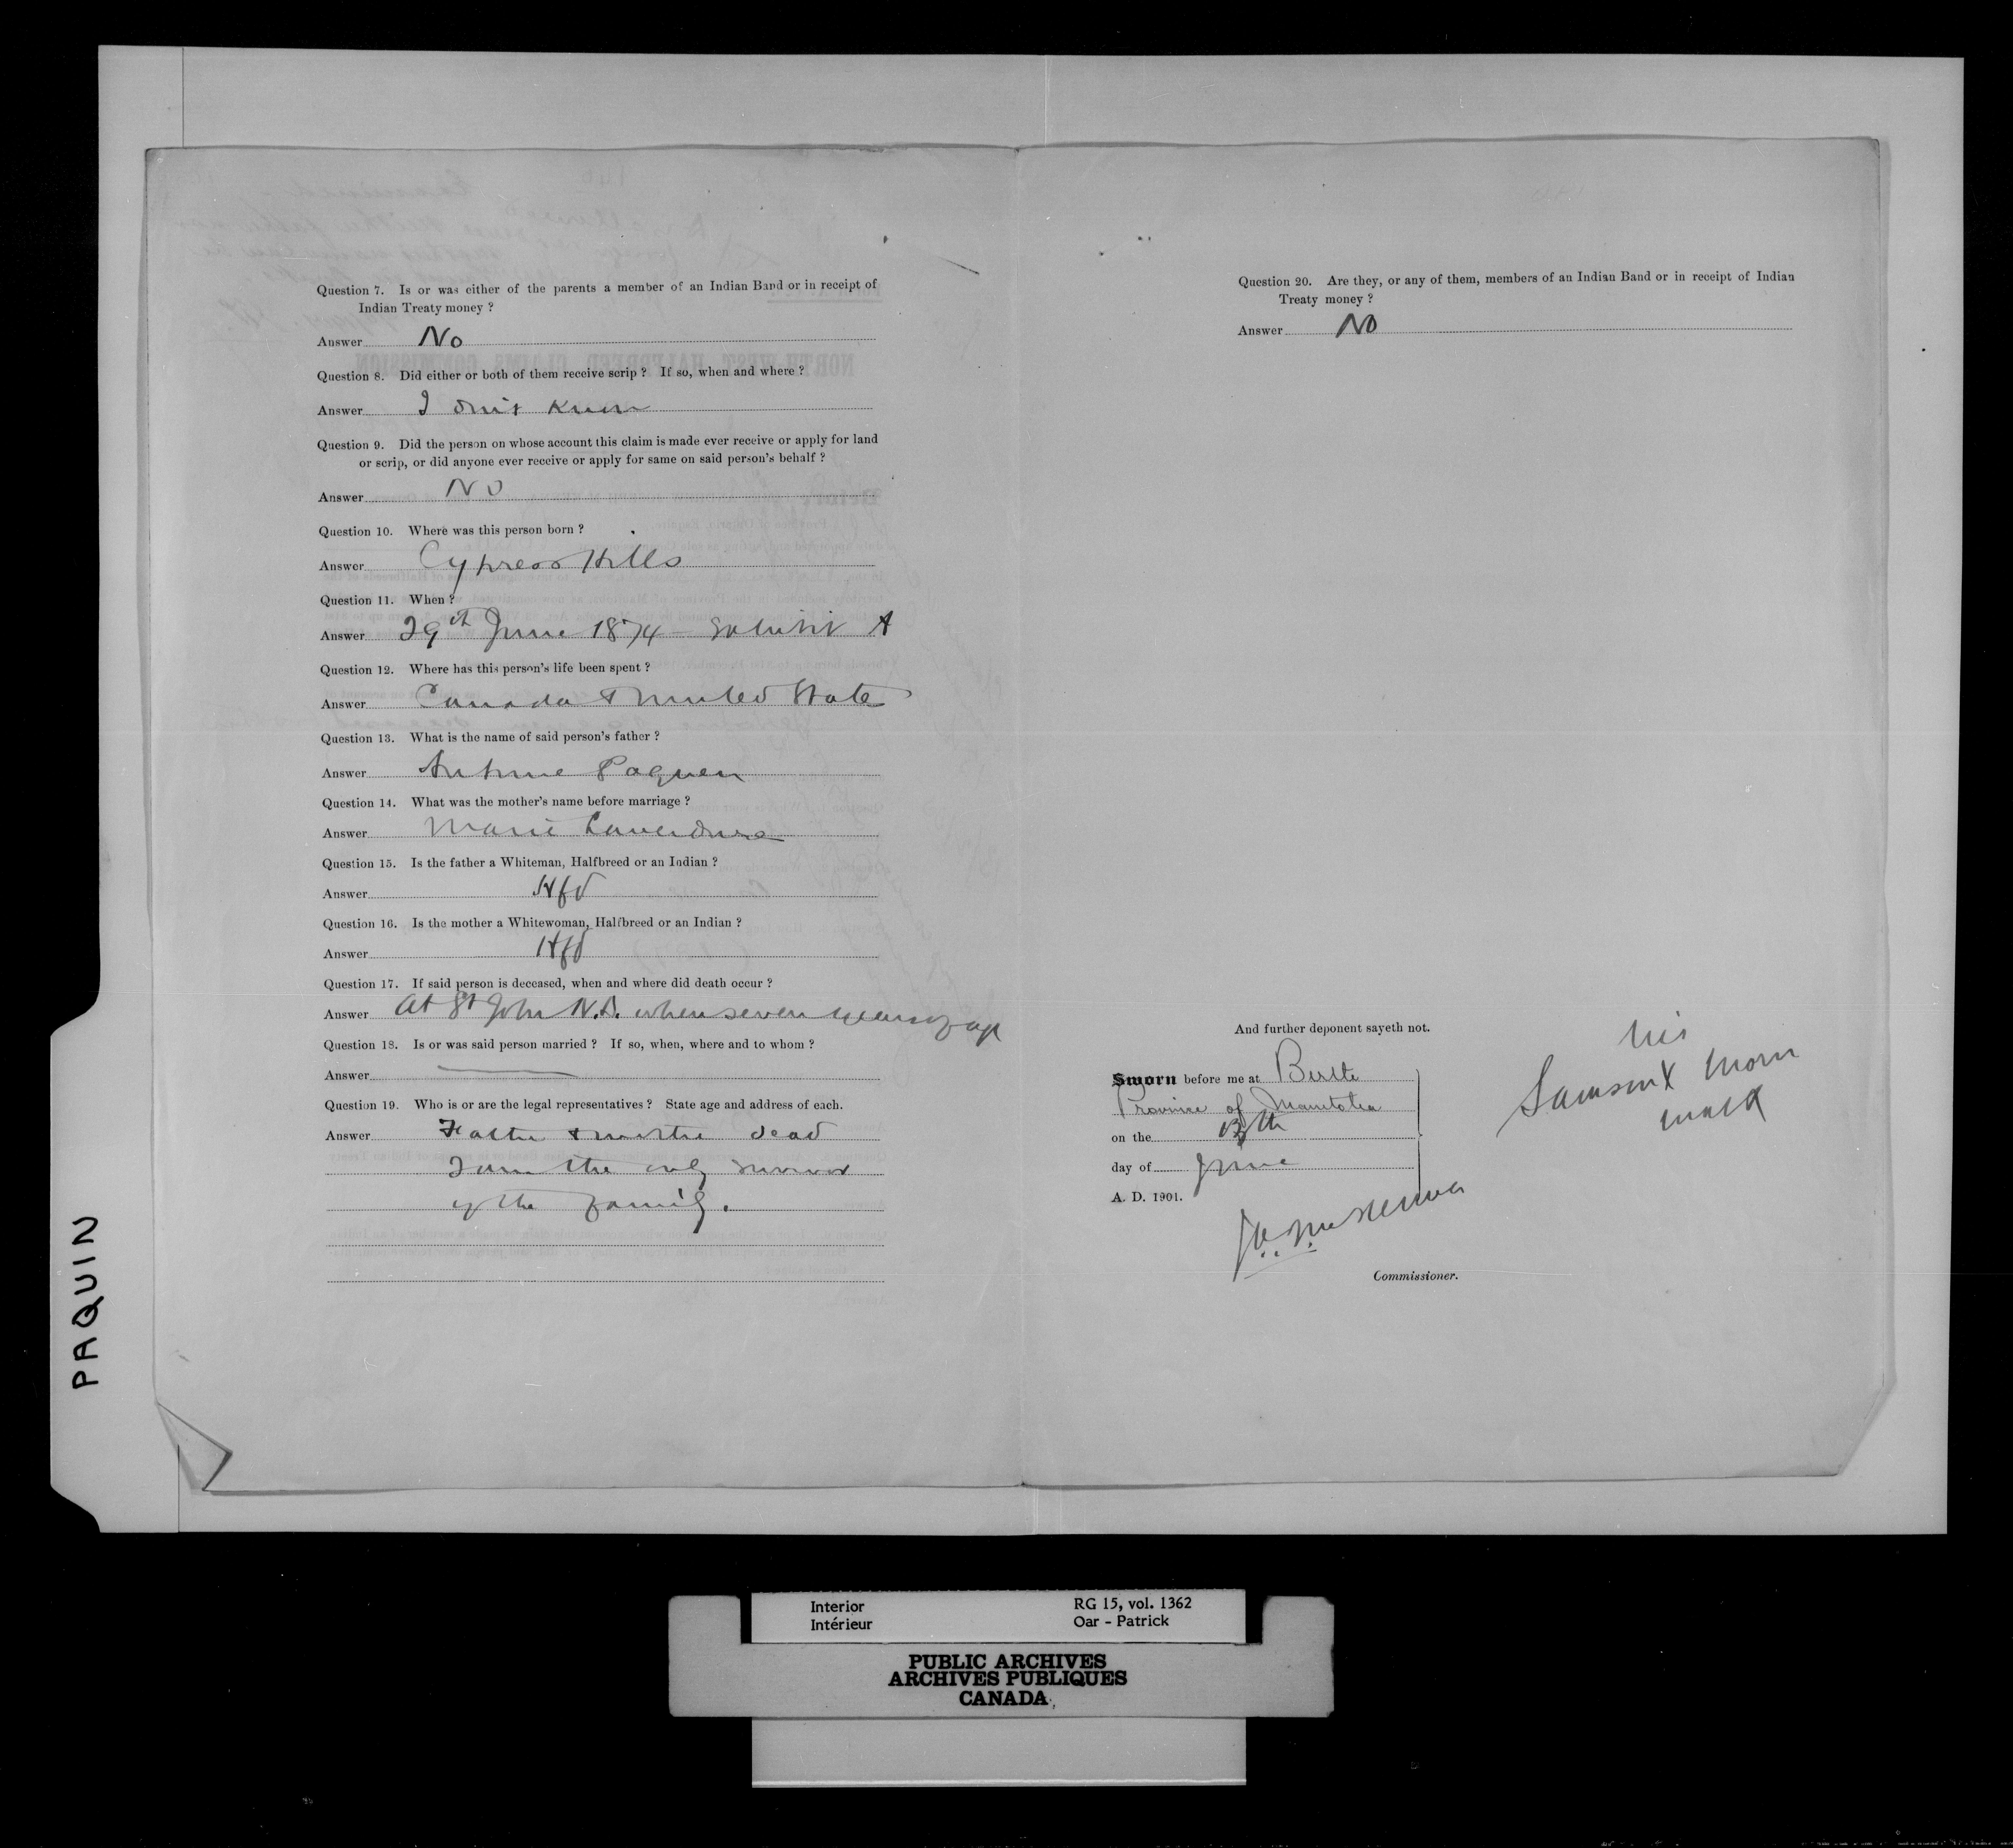 Question 7. Is or was either of the parents a member of an Indian Band or in receipt of
Indian Treaty money ?
Answer No
Question 8. Did either or both of them receive scrip ? If so, when and where ?
Answer I don't know
Question 9. Did the person on whose account this claim is made ever receive or apply for land
or scrip, or did anyone ever receive or apply for same on said person's behalf ?
Answer No
Question 10. Where was this person born ?
Answer Cypress Hills
Question 11. When ?
Answer 29th June 1874 - Exhibit A
Question 12. Where has this person's life been spent ?
Answer Canada & United State
Question 13. What is the name of said person's father ?
Answer Antoine Paquen
Question 14. What was the mother's name before marriage ?
Answer Marie Laverdure
Question 15. Is the father a Whiteman, Halfbreed or an Indian ?
Answer Hfd
Question 16. Is the mother a Whitewoman, Halfbreed or an Indian ?
Answer Hfd
Question 17. If said person is deceased, when and where did death occur ?
Answer At St John N.D. when seven years of age
Question 18. Is or was said person married ? If so, when, where and to whom ?
Answer
Question 19. Who is or are the legal representatives ? State age and address of each.
Answer Father & mother dead
I am the only survivor
of the family.
Question 20. Are they, or any of them, members of an Indian Band or in receipt of Indian
Treaty money ?
Answer No
And further deponent sayeth not.
Sworn before me at Birtle
Province of Manitoba
on the 13th
day of June
A. D. 1901.
Commissioner.
his
Samson X
mark
PAQUIN
Interior
Intérieur
RG 15, vol. 1362
Oar - Patrick
PUBLIC ARCHIVES
ARCHIVES PUBLIQUES
CANADA